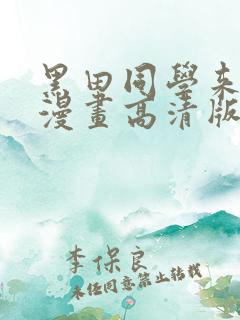 黑田同學來
漫畫高清版
李保良
未經同意禁止轉載